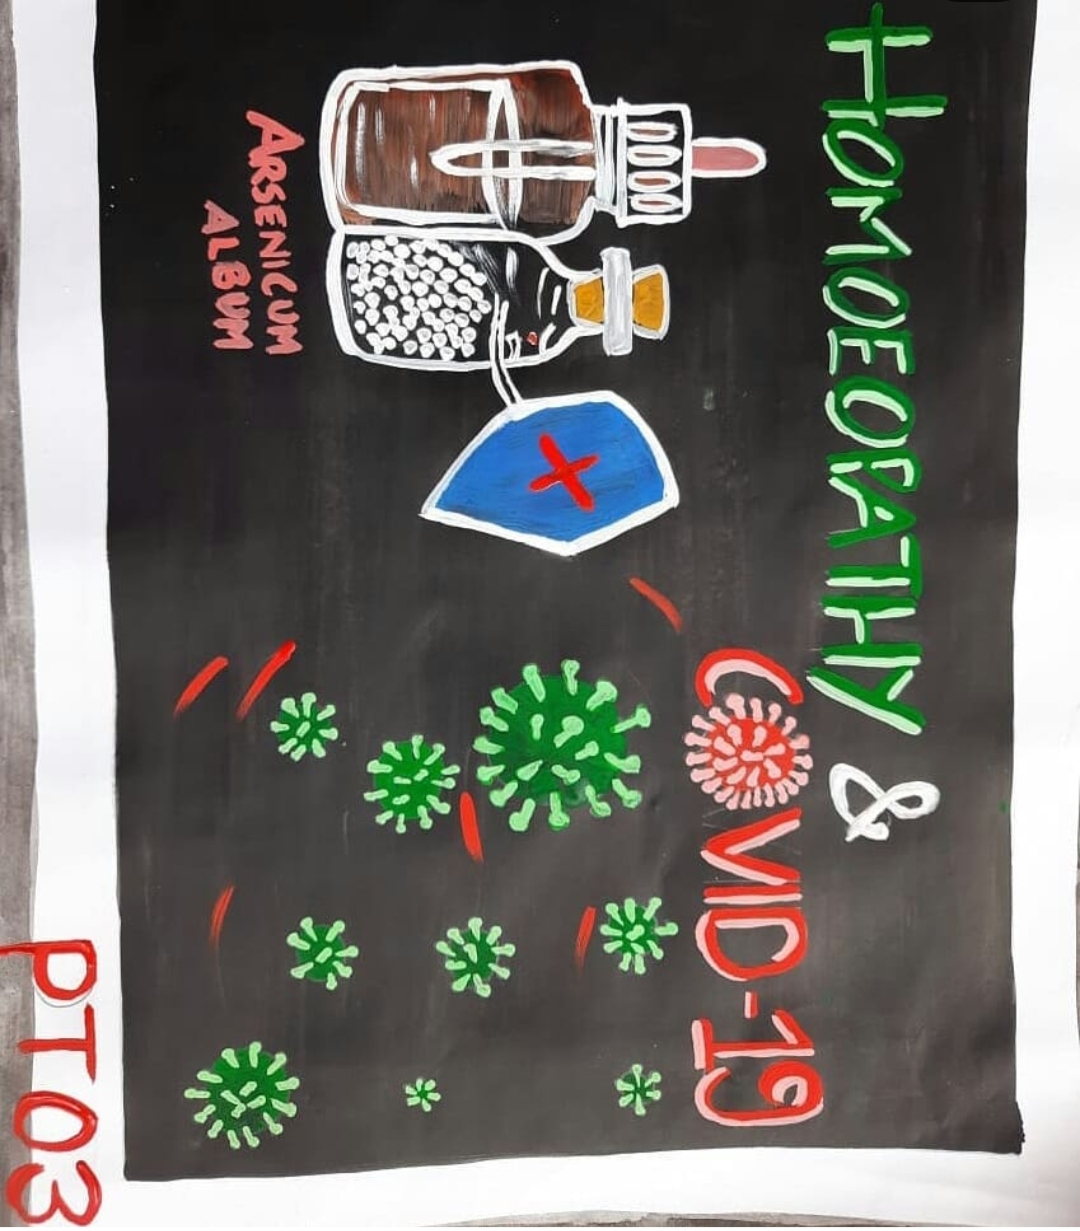 HOMOEOPATHY &
COVID-19
ARSENICUM
ALBUM
PT03